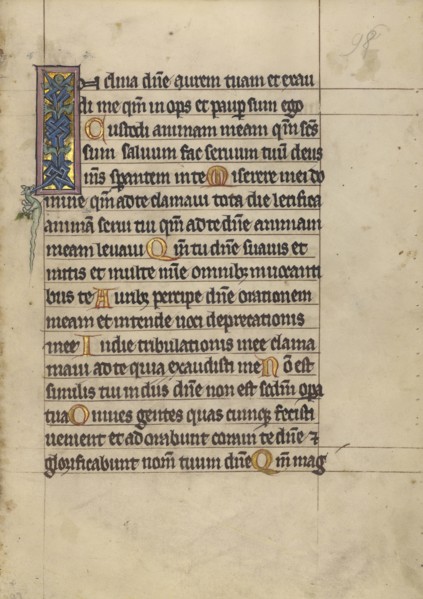 98
I nclina dñe aurem tuam et exau
di me qm̃ in ops et paup̃ sum ego
Custodi animam meam qm̃ scs̃
sum saluum fac seruum tuũ deus
me᷒ sp̃antem in te Miserere mei do
mine qm̃ ad te clamaui tota die letifica
animã serui tui qm̃ ad te dñe animam
meam leuaui Qm̃ tu dñe suauis et
mitis et multe mĩe omnibꝫ inuocanti
bus te Auribꝫ percipe dñe orationem
meam et intende uoci deprecationis
mee In die tribulationis mee clama
maui ad te quia exaudisti me Nõ est
similis tui in diis dñe non est sedm̃ opa
tua Omnes gentes quas cumqꝫ fecisti
uenient et adorabunt coram te dñe ⁊
glorificabunt nom̃ tuum dñe Qm̃ mag